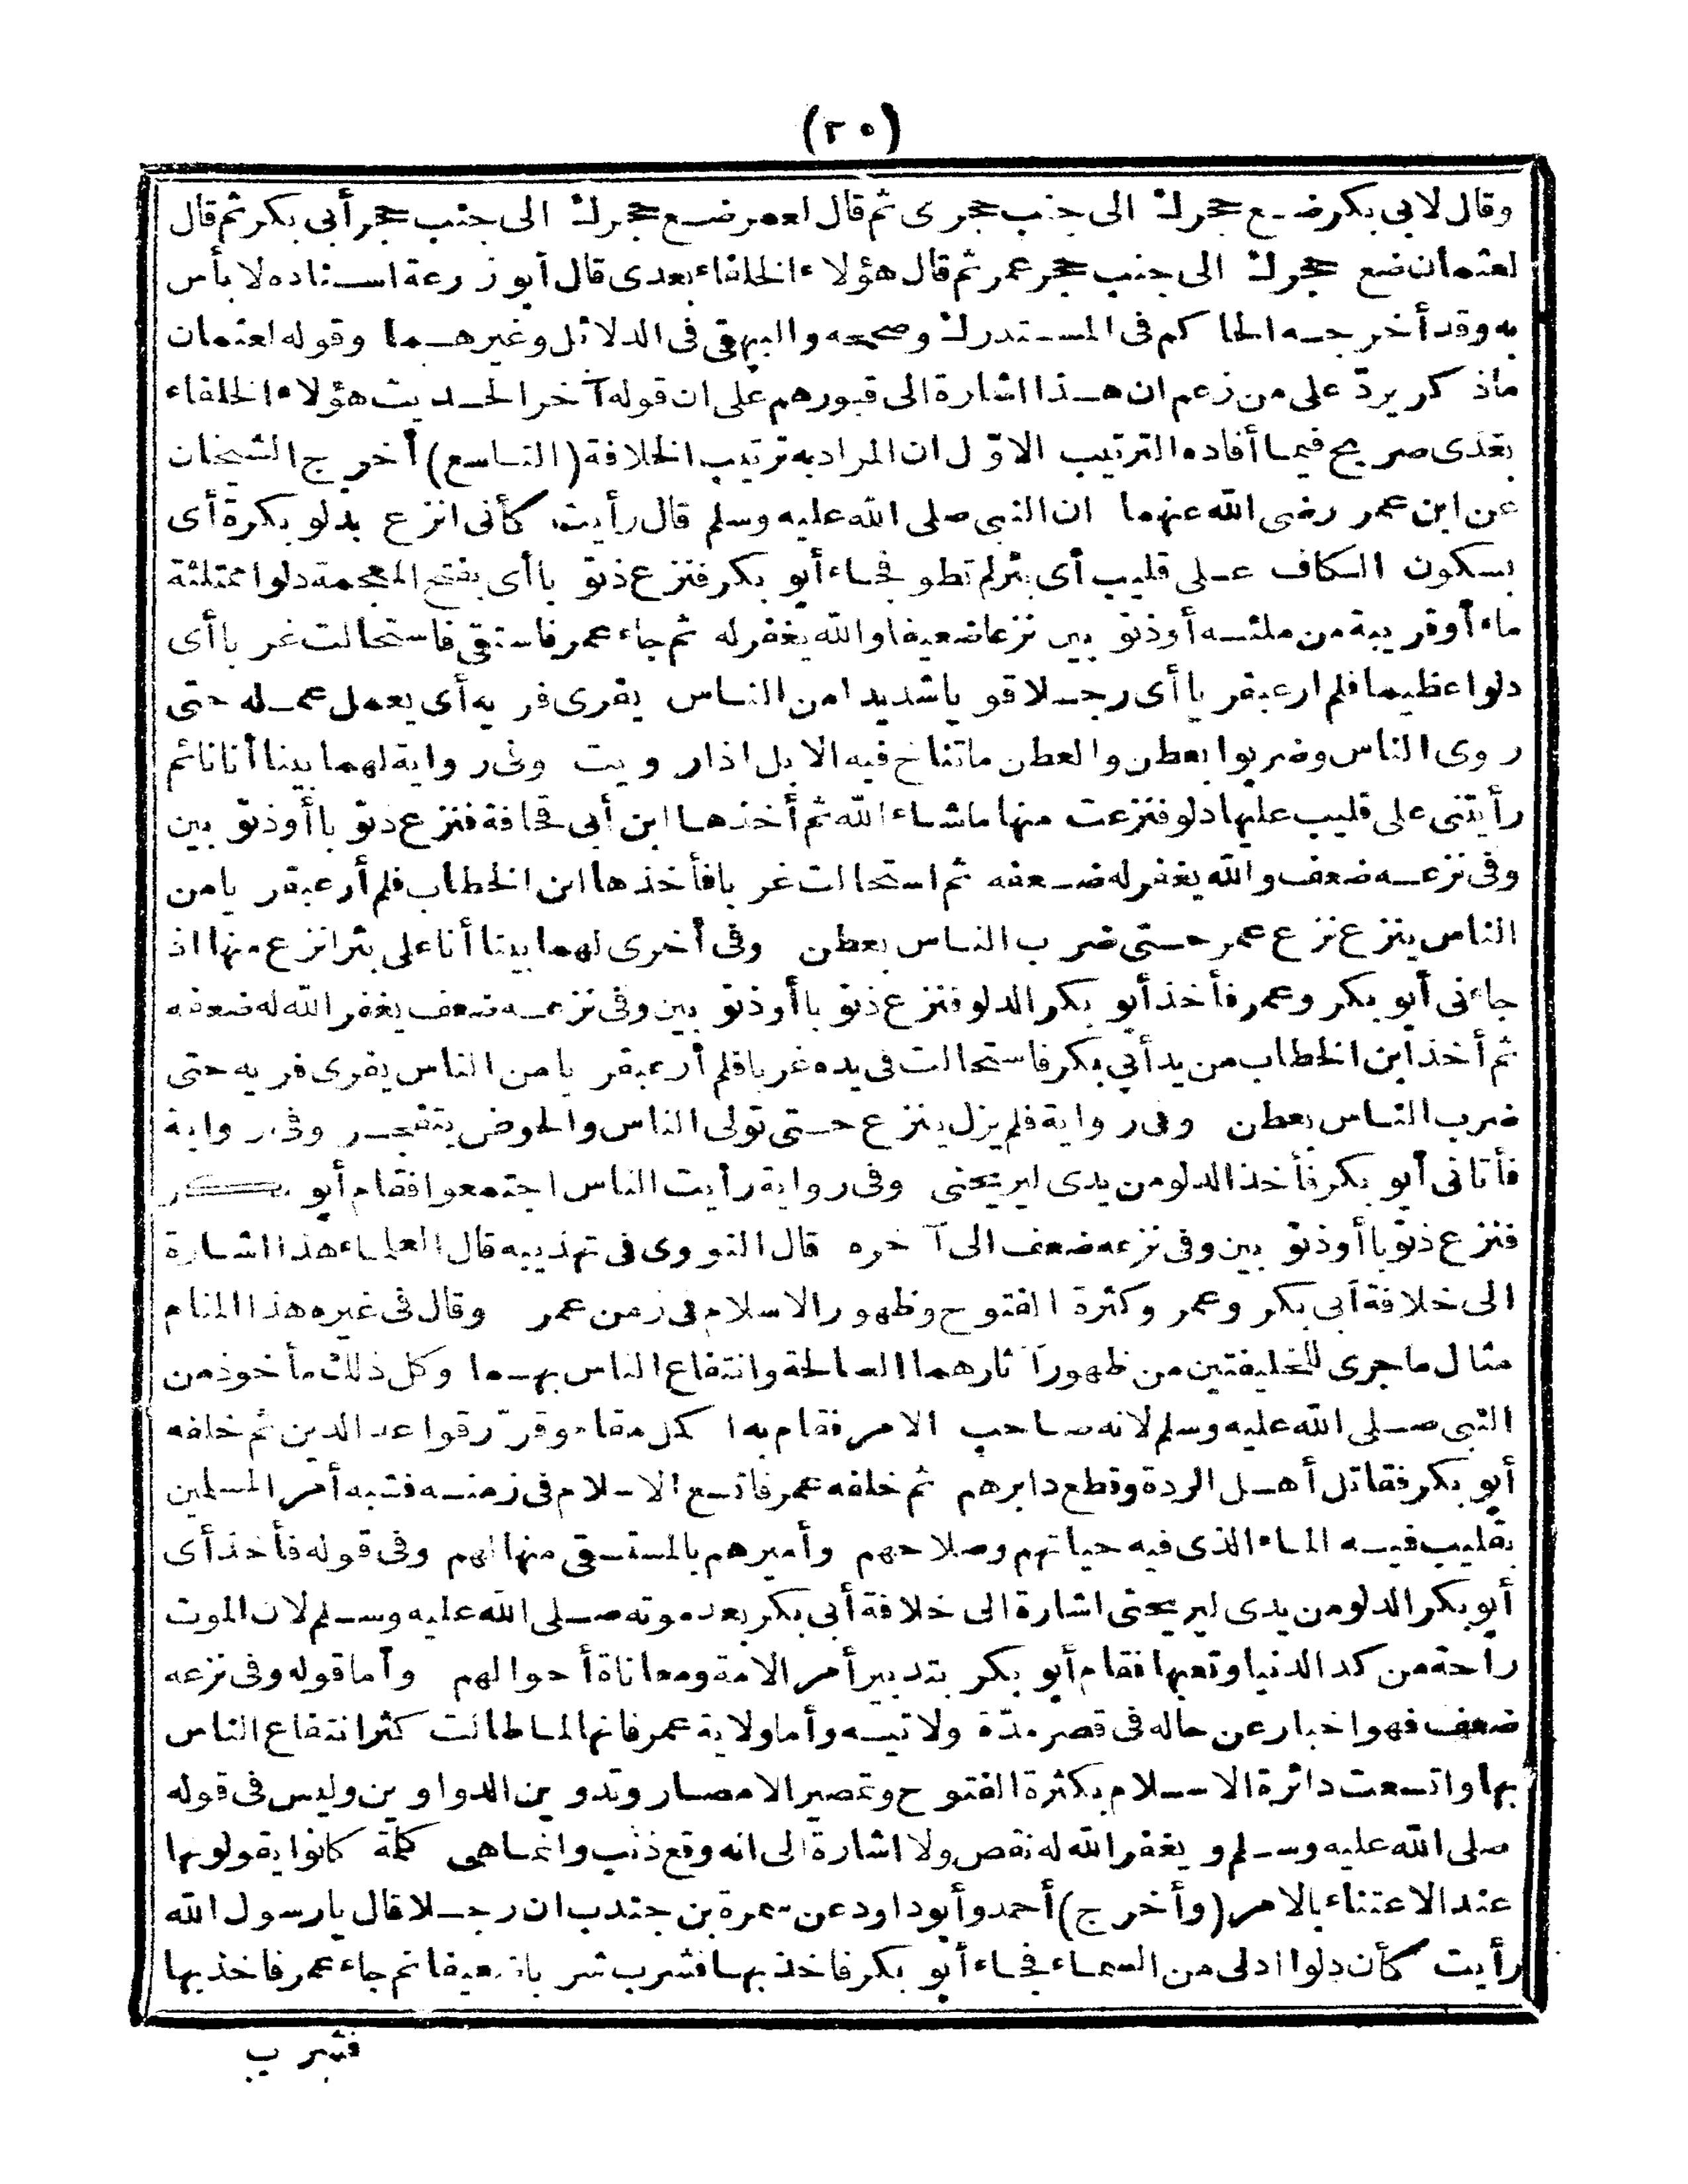 (٢٥)
وقال لابى بكر ضع حجرك الى جنب حجرى ثم قال لعمر ضع حجرك الى جنب حجر أبى بكر ثم قال
لعثمان ضع حجرك الى جنب حجر عمر ثم قال هؤلاء الخلفاء بعدى قال أبو زرعة اسناده لا بأس
به وقد أخرجه الحاكم فى المستدرك وصححه والبيهقى فى الدلائل وغيرهما وقوله لعثمان
ماذكر يردّ على من زعم ان هذا اشارة الى قبورهم على ان قوله آخر الحديث هؤلاء الخلفاء
بعدى صريح فيما أفاده الترتيب الاوّل ان المراد به ترتيب الخلافة (التاسع) أخرج الشيخان
عن ابن عمر رضى الله عنهما ان النبى صلى الله عليه وسلم قال رأيت كأنى انزع بدلو بكرة أى
بسكون الكاف على قليب أى بئر لم تطو فجاء أبو بكر فنزع ذنوباأى بفتح المعجمة دلوا ممتلئة
ماء أو قريبة من ملئه أو ذنوبين نزعا ضعيفا والله يغفر له ثم جاء عمر فاستقى فاستحالت غرباأى
دلوا عظيما فلم ار عبقرياأى رجلا قويا شديدا من الناس يفرى فريه أى يعمل عمله حتى
روى الناس وضربوا بعطن والعطن ماتناخ فيه الابل اذا رويت وفى رواية لهما بينا أنا نائم
رأيتنى على قليب عليها دلو فنزعت منها ماشاء الله ثم أخذها ابن أبى قحافة فنزع ذنوبا أو ذنوبين
وفى نزعه ضعف والله يغفر له ضعفه ثم استحالت غربا فأخذها ابن الخطاب فلم أر عبقريا من
الناس ينزع نزع عمر حتى ضرب الناس بعطن وفى أخرى لهما بينا أنا على بئر انزع منها اذ
جاءنى أبو بكر وعمر فأخذ أبو بكر الدلو فنزع ذنوبا أو ذنوبين وفى نزعه ضعف يغفر الله له ضعفه
ثم أخذ ابن الخطاب من يد أبى بكر فاستحالت فى يده غربا فلم أر عبقريا من الناس يفرى فريه حتى
ضرب الناس بعطن وفى رواية فلم يزل ينزع حتى تولى الناس والحوض يتفجر وفى رواية
فأتانى أبو بكر فأخذ الدلو من يدى ليريحنى وفى رواية رأيت الناس اجتمعوا فقام أبو بكر
فنزع ذنوبا أو ذنوبين وفى نزعه ضعف الى آخره قال النووى فى تهذيبه قال العلماء هذا اشارة
الى خلافة أبى بكر وعمر وكثرة الفتوح وظهور الاسلام فى زمن عمر وقال فى غيره هذا المنام
مثال ماجرى للخليفتين من ظهور آثارهما الصالحة وانتفاع الناس بهما وكل ذلك مأخوذ من
النبى صلى الله عليه وسلم لانه صاحب الامر فقام به اكمل مقام وقرّر قواعد الدين ثم خلفه
أبو بكر فقاتل أهل الردة وقطع دابرهم ثم خلفه عمر فاتسع الاسلام فى زمنه فشبه أمر المسلمين
بقليب فيه الماء الذى فيه حياتهم وصلاحهم وأميرهم بالمستقى منها لهم وفى قوله فأخذ أى
أبو بكر الدلو من يدى ليريحنى اشارة الى خلافة أبى بكر بعد موته صلى الله عليه وسلم لان الموت
راحة من كد الدنيا وتعبها فقام أبو بكر بتدبير أمر الامة ومعاناة أحوالهم وأما قوله وفى نزعه
ضعف فهو اخبار عن حاله فى قصر مدّة ولايته وأما ولاية عمر فانها لما طالت كثر انتفاع الناس
بها واتسعت دائرة الاسلام بكثرة الفتوح وتمصير الامصار وتدوين الدواوين وليس فى قوله
صلى الله عليه وسلم ويغفر الله له نقص ولا اشارة الى انه وقع ذنب وانما هى كلمة كانوا يقولونها
عند الاعتناء بالامر (وأخرج) أحمد وأبو داود عن سمرة بن جندب ان رجلا قال يارسول الله
رأيت كأن دلوا ادلى من السماء فجاء أبو بكر فاخذ بها فشرب شربا ضعيفا ثم جاء عمر فاخذ بها
فشرب